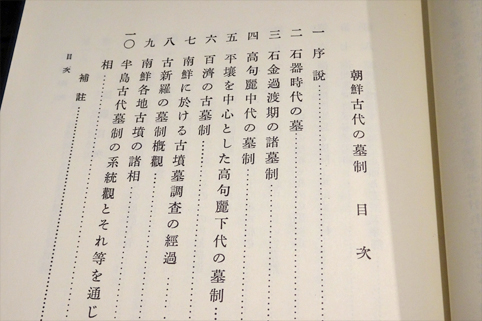 朝鮮古代の墓制 目次
一 序説
二 石器時代の墓
三 石金過渡期の諸墓制
四 高句麗中代の墓制
五 平壤を中心とした高句麗下代の墓制
六 百濟の古墓制
七 南鮮に於ける古墳墓調査の經過
八 古新羅の墓制概觀
九 南鮮各地古墳の諸相
一〇 半島古代墓制の系統觀とそれ等を通じ
相
補註
目次